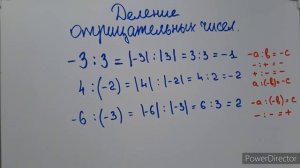 Деление
отрицательных чисел.
-3 : 3 = |-3| : |3| = 3 : 3 = -1
4 : (-2) = |4| : |-2| = 4 : 2 = -2
-6 : (-3) = |-6| : |-3| = 6 : 3 = 2
-а : в = -с
- : + = -
+ : - = -
а : (-в) = -с
-а : (-в) = с
- : - = +
PowerDirector